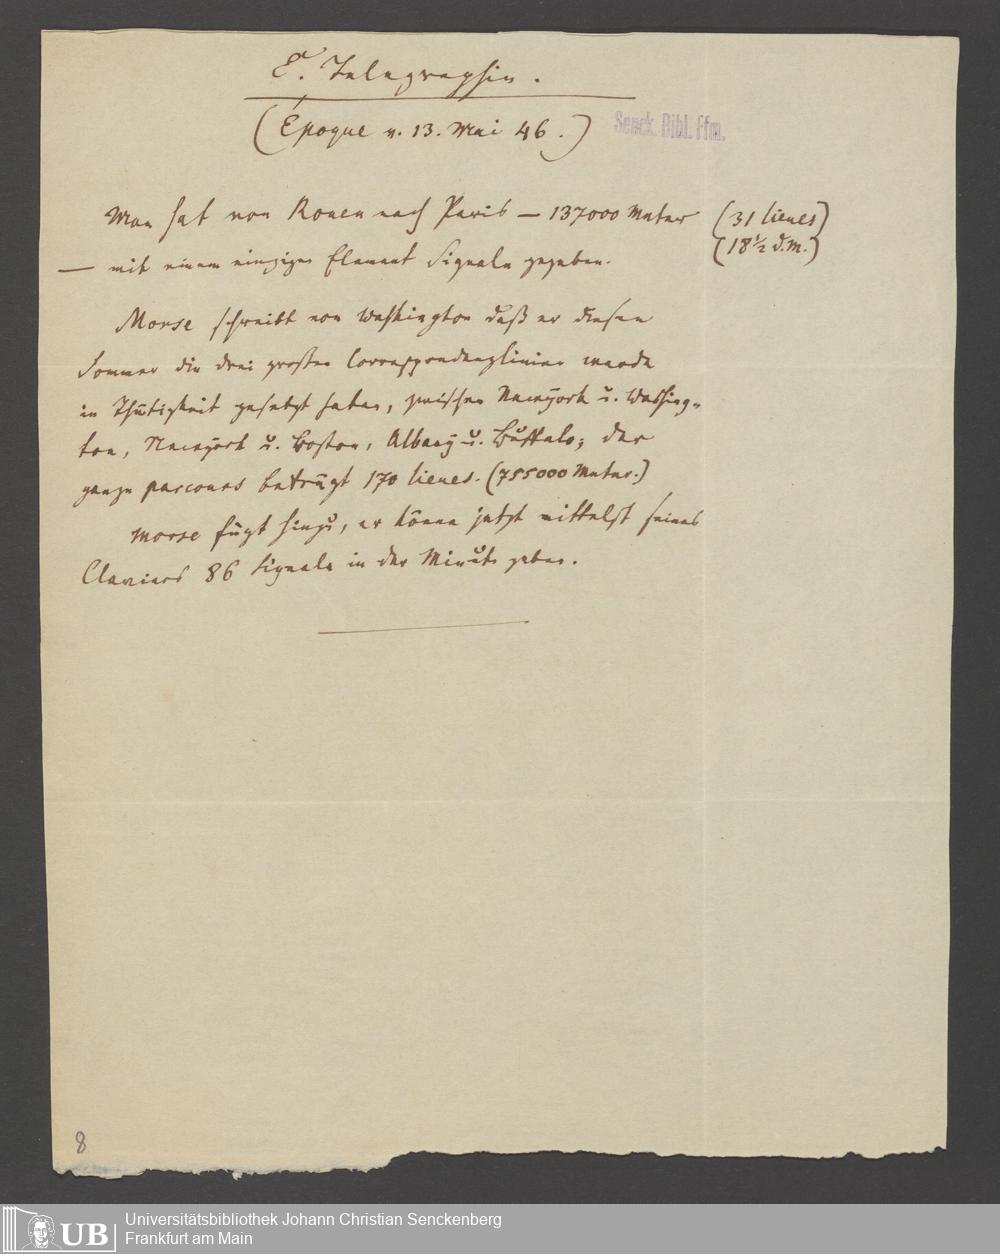 E. Telegraphie.
(Époque v. 13. Mai 46.)
Senck. Bibl. Ffm.
Man hat von Rouen nach Paris — 137000 Meter (31 lieues)
(18½ d. M.)
— mit einem einzigen Element Signale gegeben.
Morse schreibt von Washington daß er diesen
Sommer die drei großen Correspondenzlinien werde
in Thätigkeit gesetzt haben, zwischen Newyork u. Washing-
ton, Newyork u. Boston, Albany u. Buffalo; der
ganze parcours beträgt 170 lieues. (755000 Meter.)
Morse fügt hinzu, er könne jetzt mittelst seines
Claviers 86 Signale in der Minute geben.
8
UB
Universitätsbibliothek Johann Christian Senckenberg
Frankfurt am Main